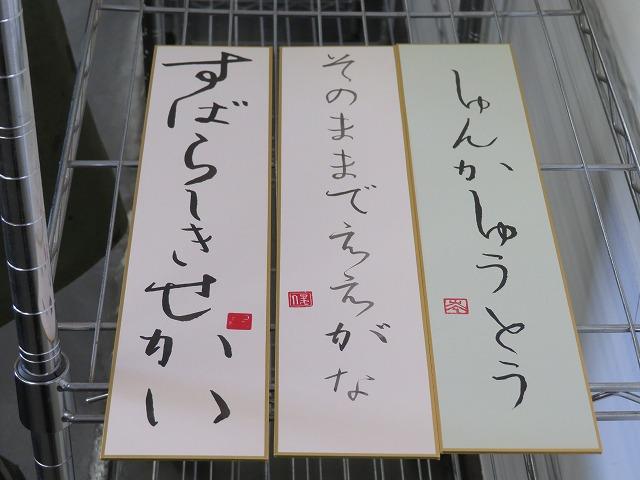 しゅんかしゅうとう
そのままでええがな
すばらしきせかい